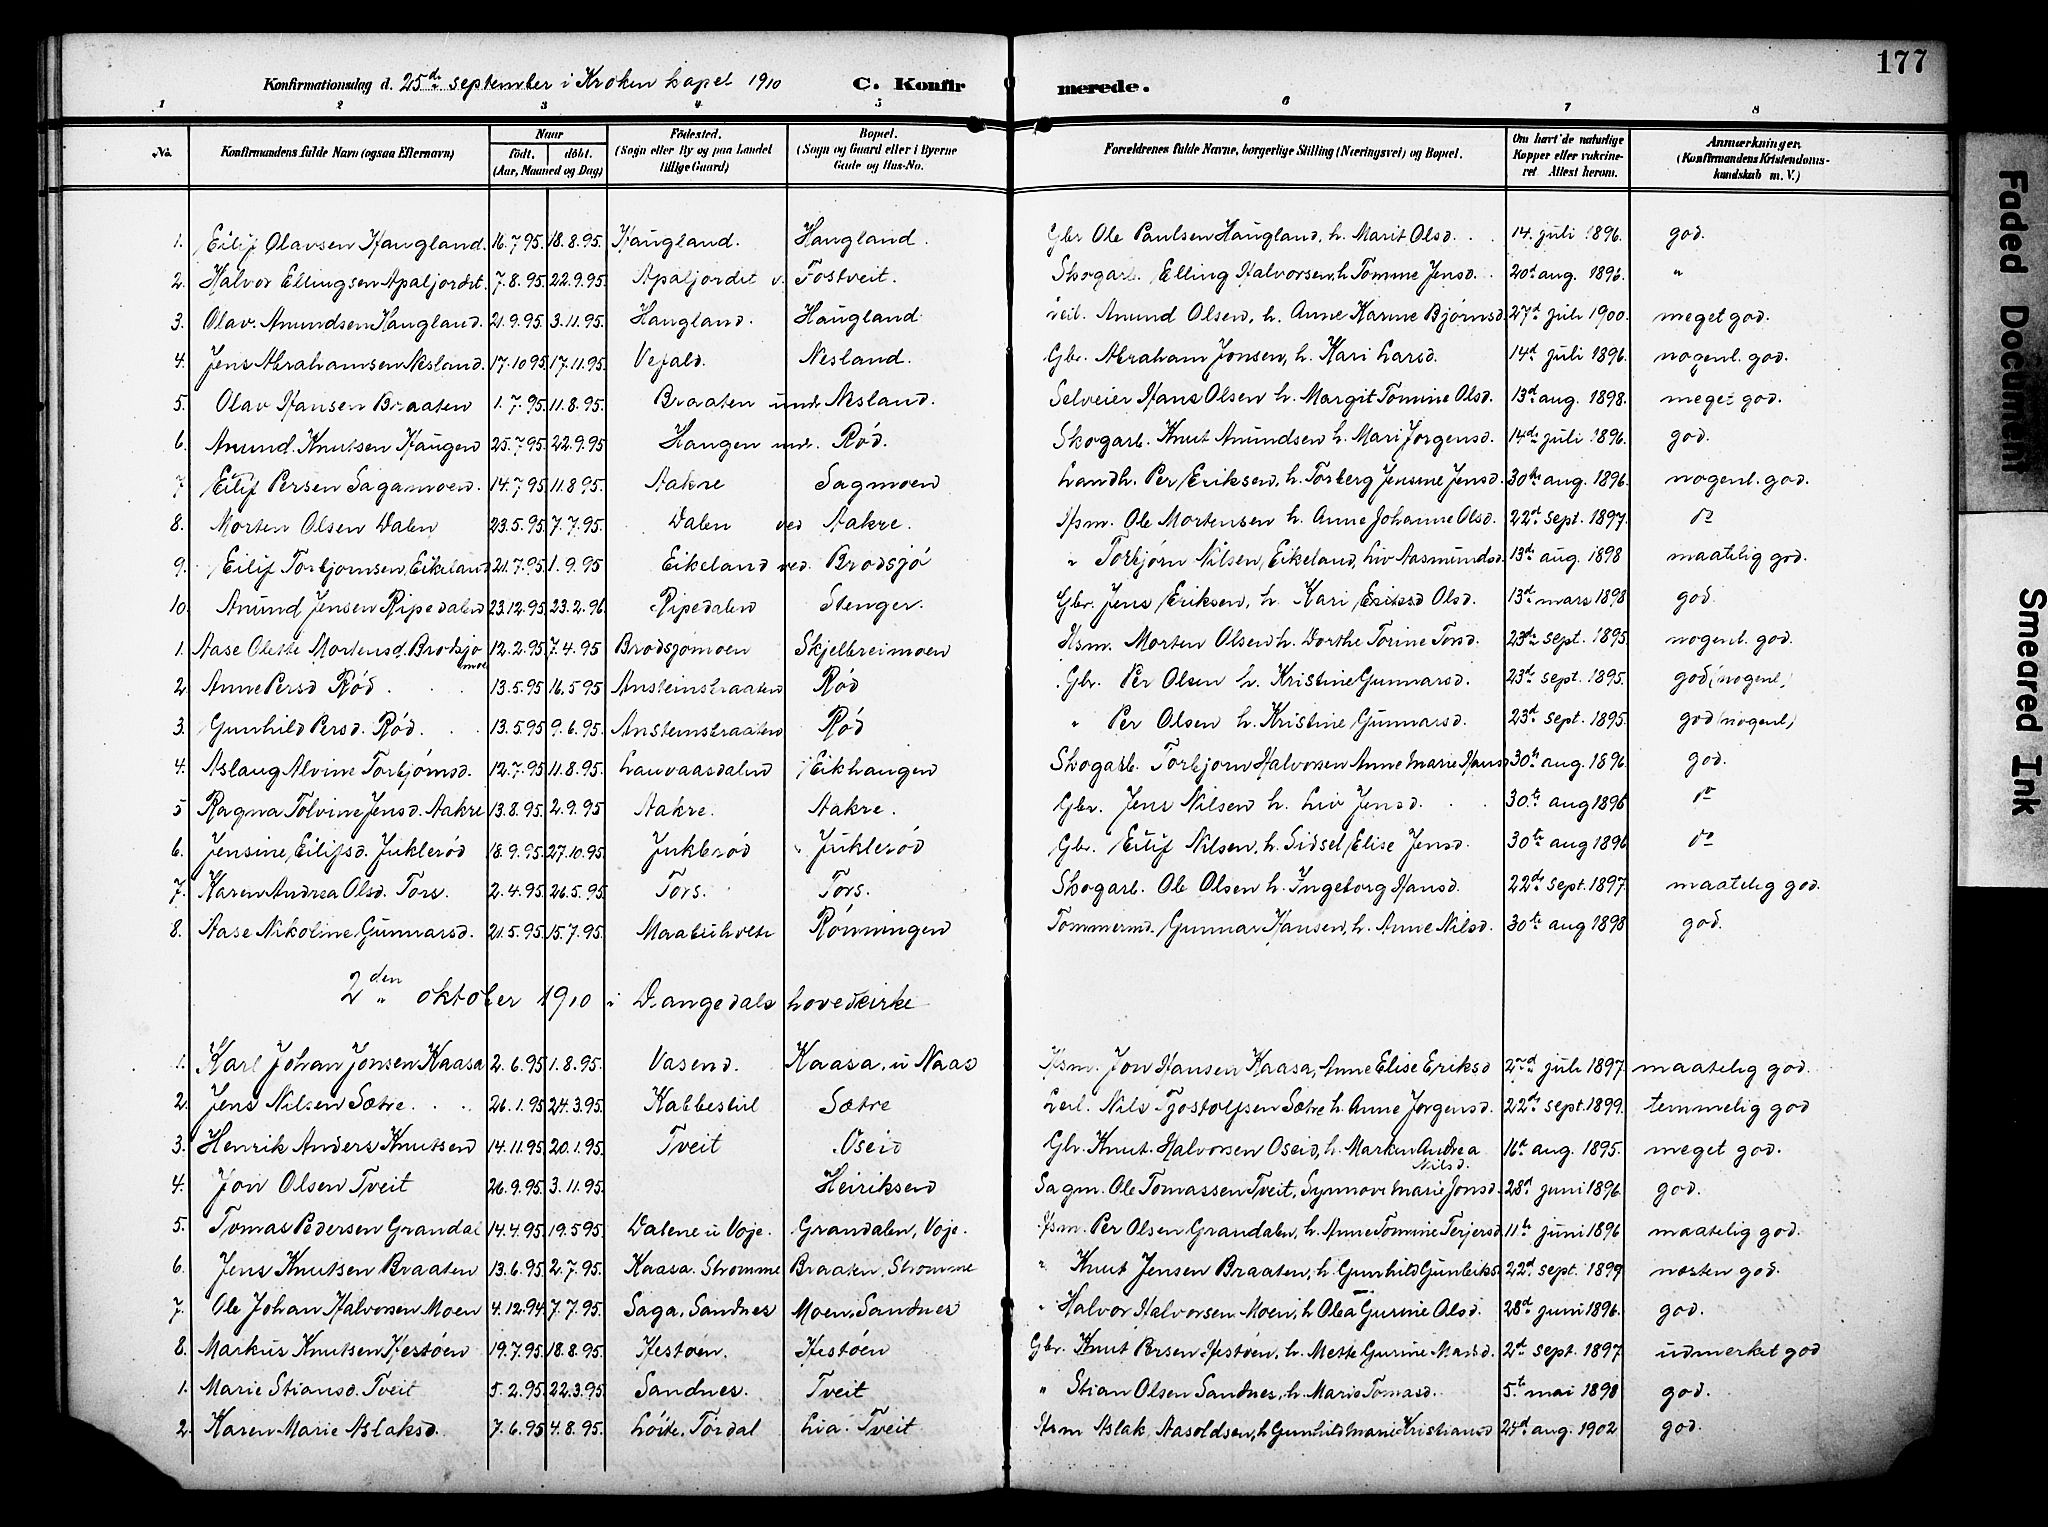 177
Konfirmationsdag d. 25de september i Kroken kapel 1910 C. Konfirmerede.
1 2 3 4 5 6 7 8
No. Konfirmandens fulde Navn (ogsaa Efternavn) Naar født. døbt. (Aar, Maaned og Dag) Fødested. (Sogn eller By og paa Landet tillige Gaard) Bopæl. (Sogn og Gaard eller i Byerne Gade og Hus-No. Forældrenes fulde Navne, borgerlige Stilling (Næringsvei) og Bopæl. Om havt de naturlige Kopper eller vakcineret Attest herom. Anmærkninger. (Konfirmandens Kristendomskundskab m. V.)
1. Eilif Olavsen Haugland. 16.7.95. 18.8.95. Haugland. Haugland. Gbr Ole Paulsen Haugland, h. Marit Olsd. 14. juli 1896. god.
2. Halvor Ellingsen Apaljordet. 7.8.95. 22.9.95. Apaljordet v. Tostveit. Skogarb. Elling Halvorsen, h Tomine Jensd. 20d aug. 1896. "
3. Olav Anundsen Haugland. 21.9.95. 3.11.95. Haugland. Haugland Anund Olsen, h. Anne Karine Bjørnsd. 27d juli 1900. meget god.
4. Jens Abrahamsen Nesland. 17.10.95. 17.11.95. Vefald. Nesland. Gbr. Abraham Jonsen, h. Kari Larsd. 14d juli 1896. nogenl. god.
5. Olav Hansen Braaten 1.7.95. 11.8.95. Braaten und. Nesland. Selveier Hans Olsen h. Margit Tomine Olsd. 13d aug. 1898. meget god.
6. Anund Knutsen Haugen 25.7.95. 22.9.95 Haugen und. Rød. Skogarb. Knut Anundsen h. Mari Jørgensd. 14de juli 1896. god.
7 Eilif Persen Sagamoen. 14.7.95. 11.8.95. Aakre Sagmoen Landh. Per Eriksen, h. Torberg Jensine Jensd. 30te aug. 1896. nogenl. god.
8. Morten Olsen Dalen 23.5.95. 7.7.95. Dalen ved Aakre. Hsm. Ole Mortensen h. Anne Johanne Olsd. 22d sept. 1897. do
9. Eilif Torbjørnsen Eikeland 21.7.95. 1.9.95 Eikeland ved Brødsjø " Torbjørn Nilsen, Eikeland, Liv Aasmundsd. 13de aug. 1898 maatelig god.
10. Anund Jensen Ripedalen 23.12.95. 23.2.96. Ripedalen Stenger. Gbr. Jens Eriksen, h. Kari Olsd. 13de mars 1898 god.
1. Aase Olette Mortensd. Brødsjømoe 12.2.95. 7.4.95 Brødsjømoen Skjelbreimoen Hsm. Morten Olsen h. Dorthe Torine Torsd. 23de sept. 1895. nogenl. god.
2 Anne Persd Rød. 13.5.95. 16.5.95 Ansteinstraaten Rød Gbr. Per Olsen h. Kristine Gunnarsd. 23de sept. 1895. god (nogenl)
3. Gunhild Persd. Rød. 13.5.95 9.6.95. Ansteinstraaten Rød " Per Olsen h. Kristine Gunnarsd. 23d sept. 1895. god (nogenl)
4. Aslaug Alvine Torbjørnsd. 12.7.95. 11.8.95. Lauvaasdalen Eikhaugen Skogarb. Torbjørn Halvorsen Anne Marie Hansd 30te aug. 1896. god.
5 Ragna Tolvine Jensd. Aakre 13.8.95. 2.9.95 Aakre. Aakre. Gbr. Jens Nilsen h. Liv Jensd. 30te aug 1896 do
6. Jensine Eilifsd. Juklerød 18.9.95. 27.10.95. Juklerød Juklerød Gbr. Eilif Nilsen, h. Sidsel Elise Jensd. 30te aug 1896 do
7. Karen Andrea Olsd. Tors. 2.4.95. 26.5.95. Tors. Tors. Skogarb. Ole Olsen h. Ingeborg Hansd. 22de sept. 1897. maatelig god.
8. Aase Nikoline Gunnarsd. 21.5.95. 15.7.95. Rønningen Tømmermd. Gunnar Hansen, h. Anne Nilsd. 30te aug 1898 god.
2den oktober 1910 i Drangedals hovedkirke
1. Karl Johan Jonsen Kaasa 2.6.95. 1.8.95. Vasend. Kaasa, u Naas Hsm. Jon Hansen Kaasa, Anne Elise Eriksd 2d juli 1897. maatelig god.
2. Jens Nilsen Sætre. 26.1.95. 24.3.95. Kabbestul Sætre Leil. Nils Tjostolfsen Sætre h. Anne Jørgensd. 22de sept. 1899. temmelig god
3. Henrik Anders Knutsen 14.11.95. 20.1.95. Tveit Oseid Gbr. Knut Halvorsen Oseid, h. Marken Andrea Nilsd. 16de aug. 1895. meget god.
4. Jon Olsen Tveit 26.9.95. 3.11.95. Heiriksen Sagm. Ole Tomassen Tveit, Synnove Marie Jonsd. 28d juni 1896. god.
5. Tomas Pedersen Grandal 14.4.95. 19.5 95. Dalene u Voje. Grandalen, Voje. Hsm. Per Olsen Grandalen, h. Anne Tomine Terjersd. 11te juni 1896 maatelig god.
6. Jens Knutsen Braaten 13.6.95. 2.7.95. Kaasa. Strømme Braaten, Strømme " Knut Jensen Braaten, h. Gunhild Gunleiks 22d sept. 1899 næsten god.
7. Ole Johan Halvorsen Moen 4.12.94. 7.7.95. Saga, Sandnes Moen, Sandnes " Halvor Halvorsen Moen, h Olea Gurine Olsd. 28d juni 1896. god.
8. Markus Knutsen Hestøen 19.7.95. 18.8.95. Hestøen. Hestøen Gbr. Knut Persen Hestøen, h. Mette Gurine Marsd. 2d sept. 1897. udmerket god
1. Marie Stiansd. Tveit 5.2.95. 22.3.95. Sandnes. Tveit " Stian Olsen Sandnes, h. Marie Tomasd. 5te mai 1898 god.
2. Karen Marie Aslaksd. 7.6.95. 4.8.95. Løite. Tørdal Lia. Tveit Hsm Aslak Aasoldsen, h Gunhild Marie Kristiansd 24d aug. 1902 god.
Faded Document
Smeared Ink